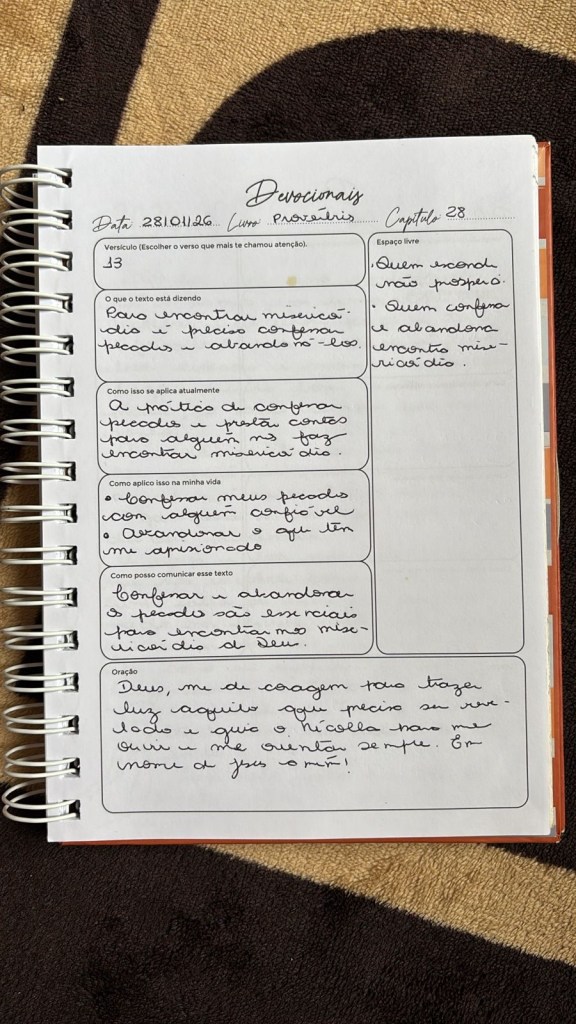 Devocionais
Data 28/01/26 Livro Provérbios Capítulo 28
Versículo (Escolher o verso que mais te chamou atenção).
13
O que o texto está dizendo
Para encontrar misericór-
dia é preciso confessar
pecados e abandoná-los.
Como isso se aplica atualmente
A prática de confessar
pecados e prestar contas
para alguém nos faz
encontrar misericórdia.
Como aplico isso na minha vida
• Confessar meus pecados
com alguém confiável
• Abandonar o que tem
me aprisionado
Como posso comunicar esse texto
Confessar e abandonar
o pecado são essenciais
para encontrarmos mise-
ricórdia de Deus.
Espaço livre
• Quem esconde
não prospera.
• Quem confessa
e abandona
encontra mise-
ricórdia.
Oração
Deus, me dê coragem para trazer
luz aquilo que precisa ser reve-
lado e guia a Nicolla para me
ouvir e me orientar sempre. Em
nome de Jesus amém!